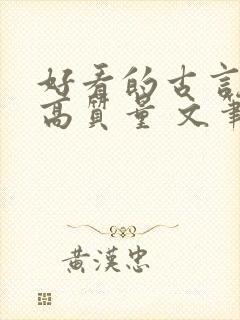 好看的古言
高質量 文筆
黃漢忠